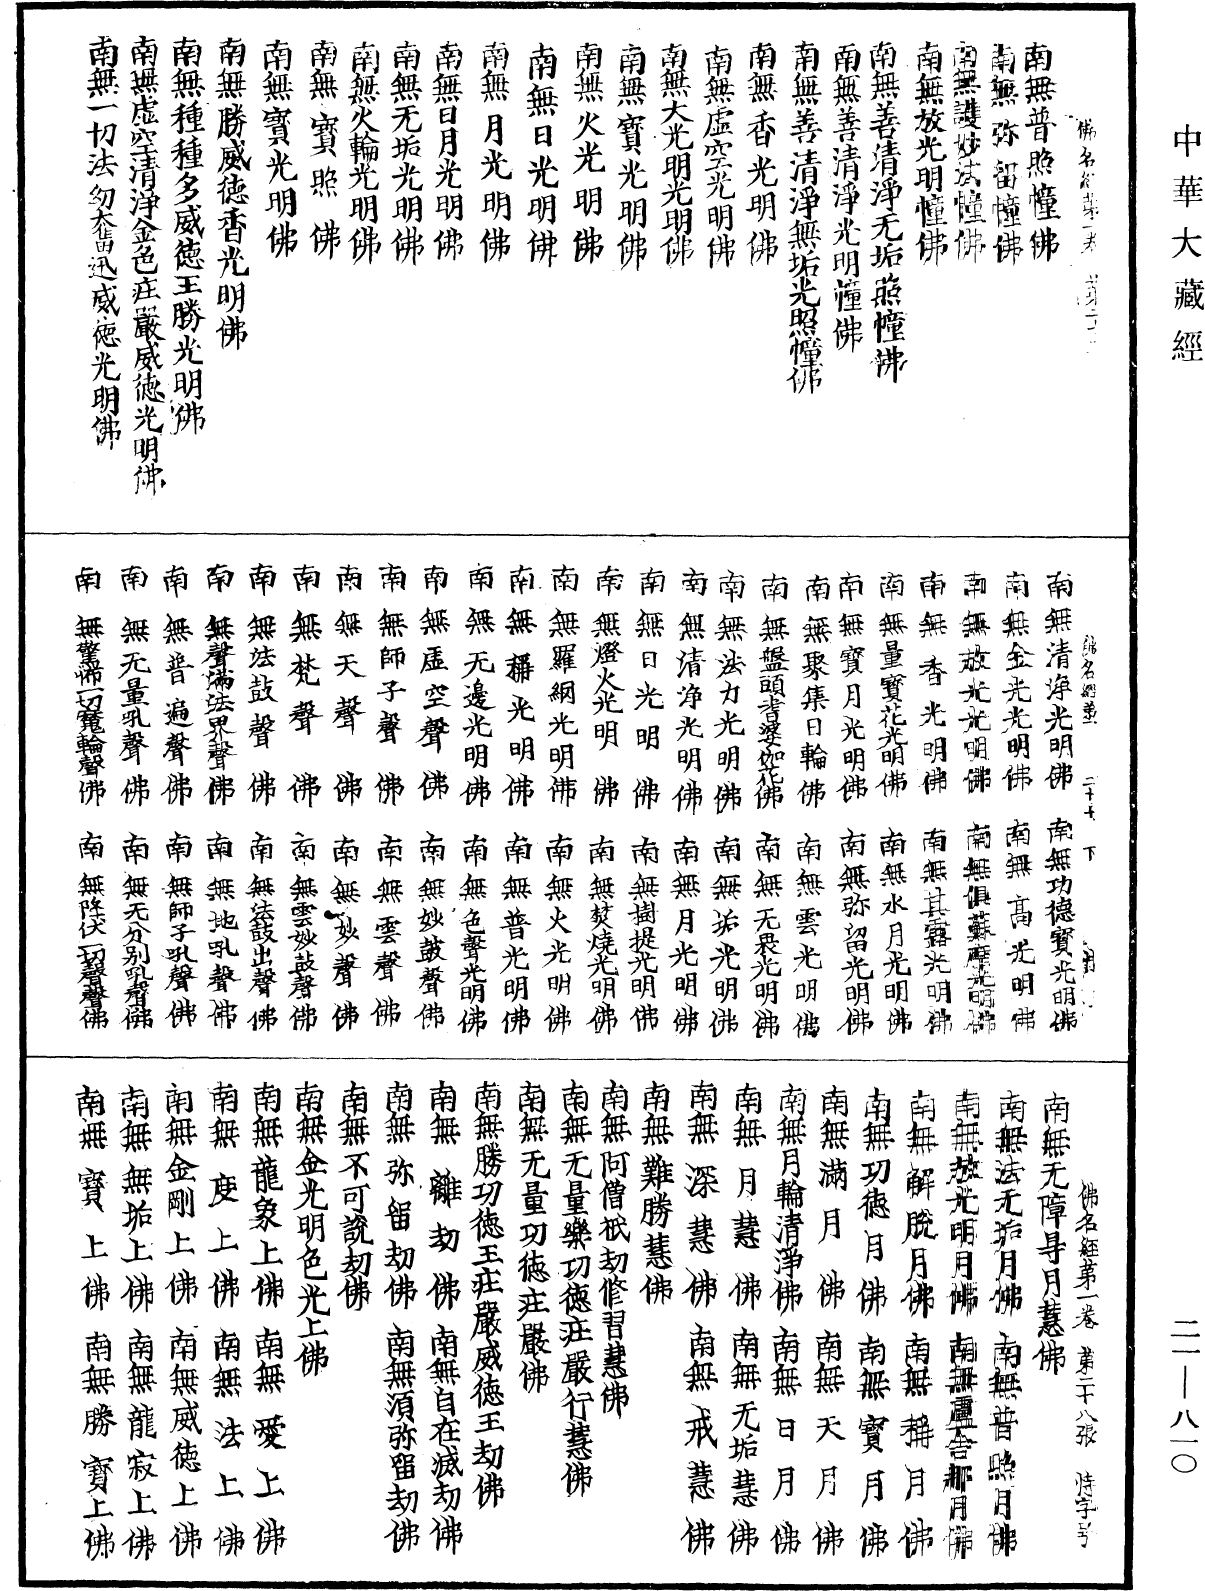 中華大藏經
南無普照幢佛
南無弥留幢佛
南無護妙法幢佛
南無放光明幢佛
南無善清淨无垢燕幢佛
南無善清淨光明幢佛
南無善清淨無垢光照幢佛
南無香光明佛
南無虛空光明佛
南無大光明光明佛
南無寶光明佛
南無火光明佛
南無日光明佛
南無月光明佛
南無日月光明佛
南無无垢光明佛
南無火輪光明佛
南無寶照佛
南無寶光明佛
南無勝威德香光明佛
南無種種多威德王勝光明佛
南無虛空清淨金色庄嚴威德光明佛
南無一切法幼奮迅威德光明佛
南無清淨光明佛 南無功德寶光明佛
南無金光光明佛 南無高光明佛
南無放光光明佛 南無俱蘇摩光明佛
南無香光明佛 南無其露光明佛
南無量寶花光明佛 南無水月光明佛
南無寶月光明佛 南無弥留光明佛
南無聚集日輪佛 南無雲光明佛
南無盤頭耆婆伽花佛 南無无畏光明佛
南無法力光明佛 南無垢光明佛
南無清淨光明佛 南無月光明佛
南無日光明佛 南無樹提光明佛
南無燈火光明佛 南無焚燒光明佛
南無羅網光明佛 南無火光明佛
南無稱光明佛 南無普光明佛
南無无邊光明佛 南無色聲光明佛
南無虛空聲佛 南無妙鼓聲佛
南無師子聲佛 南無雲聲佛
南無天聲佛 南無妙聲佛
南無梵聲佛 南無雲妙鼓聲佛
南無法鼓聲佛 南無法鼓出聲佛
南無聲滿法界聲佛 南無地吼聲佛
南無普遍聲佛 南無師子吼聲佛
南無无量吼聲佛 南無无分別吼聲佛
南無驚怖一切魔輪聲佛 南無降伏一切聲聲佛
佛名經第一卷 第二十八張 恃字号
南無无障导月慧佛
南無法无垢月佛 南無普照月佛
南無放光明月佛 南無盧舍那月佛
南無解脫月佛 南無稱月佛
南無功德月佛 南無寶月佛
南無滿月佛 南無天月佛
南無月輪清淨佛 南無日月佛
南無月慧佛 南無无垢慧佛
南無深慧佛 南無戒慧佛
南無難勝慧佛
南無阿僧祇劫修習慧佛
南無无量樂功德庄嚴行慧佛
南無无量功德庄嚴佛
南無勝功德王庄嚴威德王劫佛
南無離劫佛 南無自在滅劫佛
南無弥留劫佛 南無須弥留劫佛
南無不可說劫佛
南無金光明色光上佛
南無龍象上佛 南無愛上佛
南無度上佛 南無法上佛
南無金剛上佛 南無威德上佛
南無無垢上佛 南無龍寂上佛
南無寶上佛 南無勝寶上佛
二一—八一〇